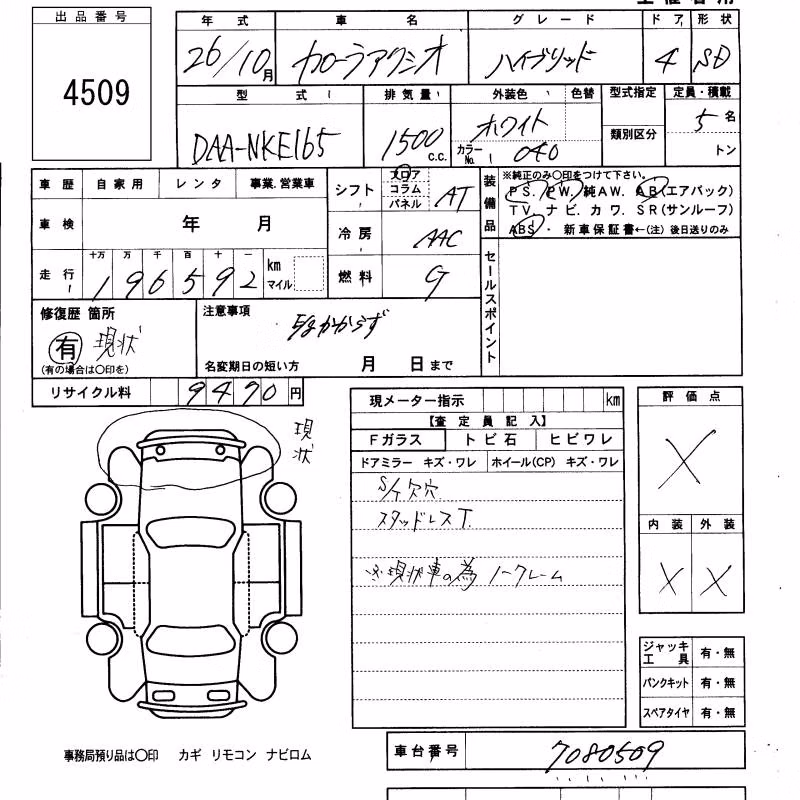 出品番号
4509
年式 車名 グレード ドア 形状
26/10月 カローラアクシオ ハイブリッド 4 SD
型式 排気量 外装色 色替 型式指定 定員・積載
DAA-NKE165 1500 c.c. ホワイト カラーNo. 040 類別区分 5名
トン
車歴 自家用 レンタ 事業.営業車
車検 年 月
走行 十万 万 千 百 十 一
196592 km マイル
シフト フロア コラム パネル AT
冷房 AAC
燃料 G
装備品
※純正のみ○印をつけて下さい。
PS. PW. 純AW. AB(エアバック)
TV. ナビ. カワ. SR(サンルーフ)
ABS ・ 新車保証書←(注) 後日送りのみ
セールスポイント
修復歴 箇所
有 現状
(有の場合は○印を)
注意事項
かからず
名変期日の短い方 月 日まで
リサイクル料 9490円
現状
現メーター指示 km
【査定員記入】
Fガラス トビ石 ヒビワレ
ドアミラー キズ・ワレ ホイール(CP) キズ・ワレ
S/T欠穴
スタッドレスT.
※現状車の為 ノークレーム
評価点
X
内装 外装
X X
ジャッキ工具 有・無
パンクキット 有・無
スペアタイヤ 有・無
事務局預り品は○印 カギ リモコン ナビロム
車台番号 7080509